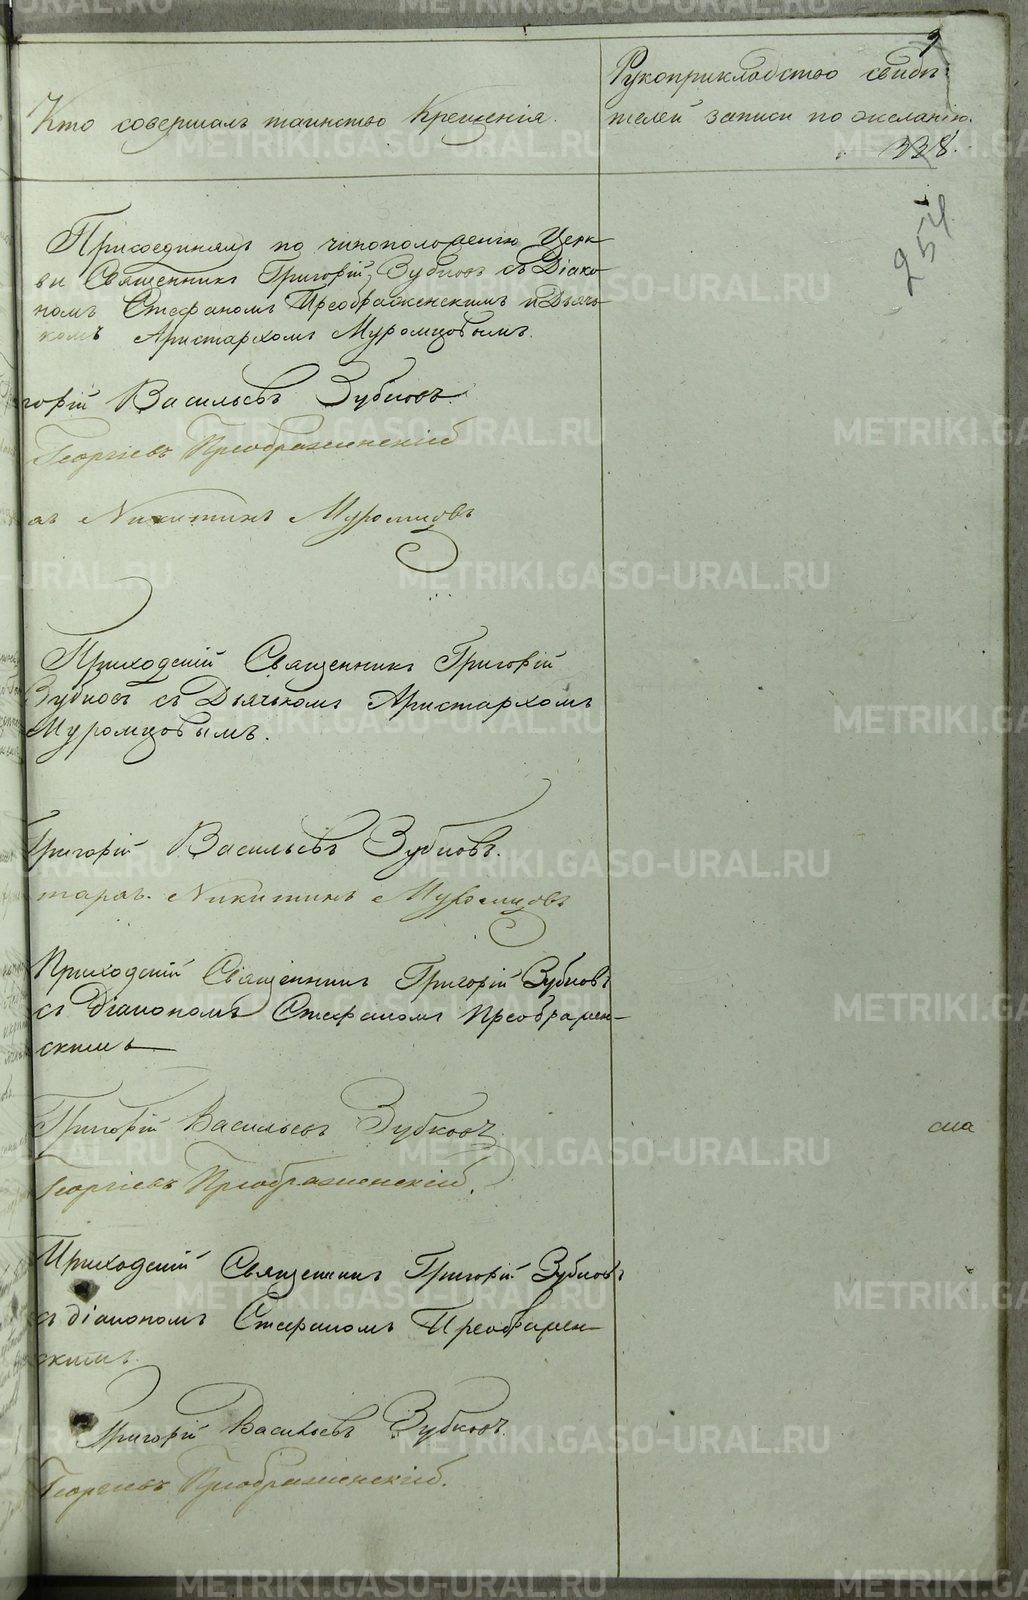 9
Кто совершалъ таинство Крещенія.
Рукоприкладство свидѣ-
телей записи по желанію.
338.
254
Присоединялъ по чиноположенію Церк-
ви Священникъ Григорій Зубковъ съ Діако-
номъ Стефаномъ Преображенскимъ и Дьяч-
комъ Аристархомъ Муромцовымъ.
горій Васильевъ Зубковъ.
Георгіевъ Преображенскій
Никитинъ Муромцовъ
Приходскій Священникъ Григорій
Зубковъ съ Дьячкомъ Аристархомъ
Муромцовымъ.
Григорій Васильевъ Зубковъ.
тархъ Никитинъ Муромцовъ
Приходскій Священникъ Григорій Зубковъ
съ Діакономъ Стефаномъ Преображен-
скимъ
Григорій Васильевъ Зубковъ
Георгіевъ Преображенскій.
Приходскій Священникъ Григорій Зубковъ
съ діакономъ Стефаномъ Преображен-
скимъ.
Григорій Васильевъ Зубковъ.
Георгіевъ Преображенскій.
METRIKI.GASO-URAL.RU